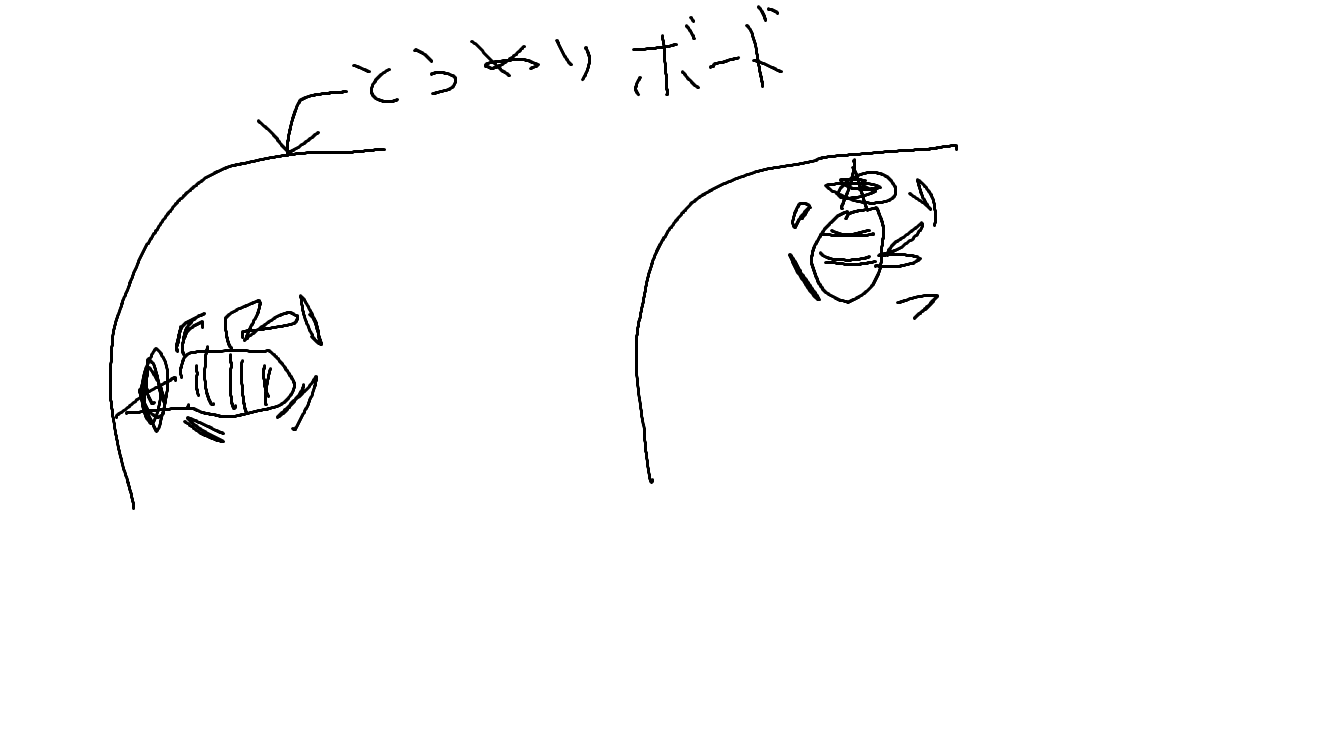 とうめいボード